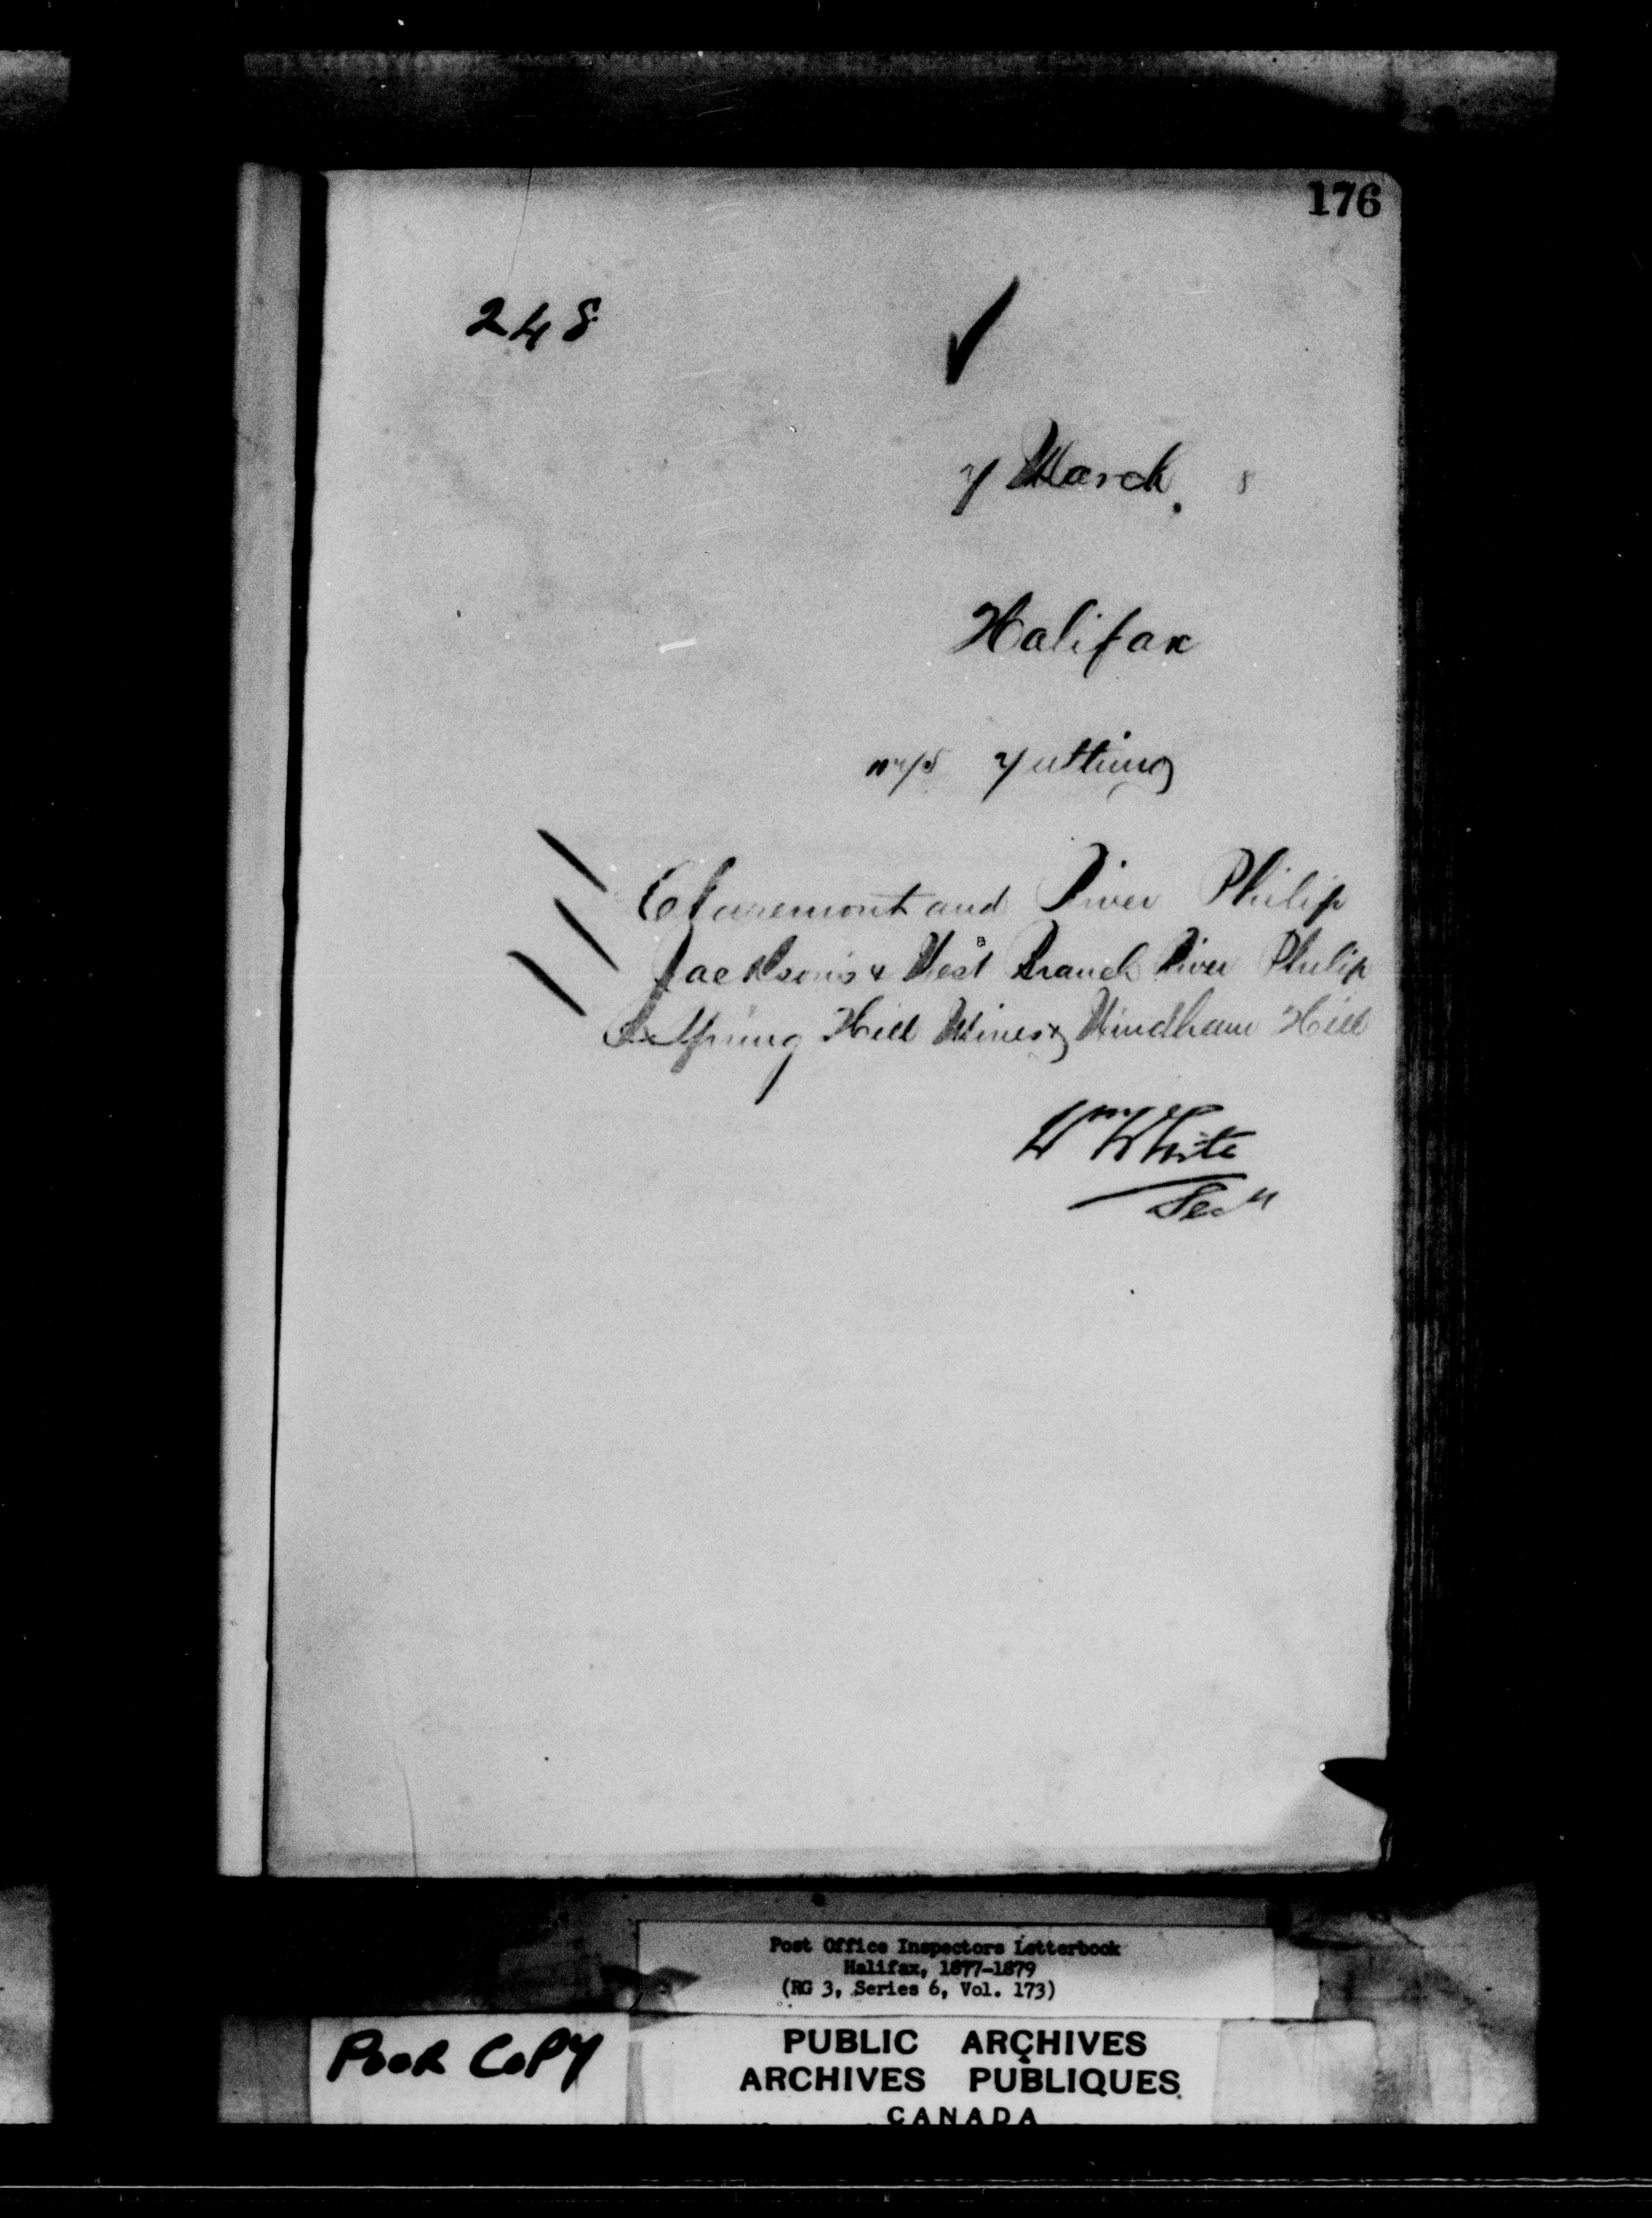 176
248
7 March. 8
Halifax
Claremont and River Philip
Jackson's & West Branch River Philip
& Spring Hill Mines & Windham Hill
Wm White
Secy
Post Office Inspectors Letterbook
Halifax, 1877-1879
(RG 3, Series 6, Vol. 173)
POOR COPY
PUBLIC ARCHIVES
ARCHIVES PUBLIQUES
CANADA